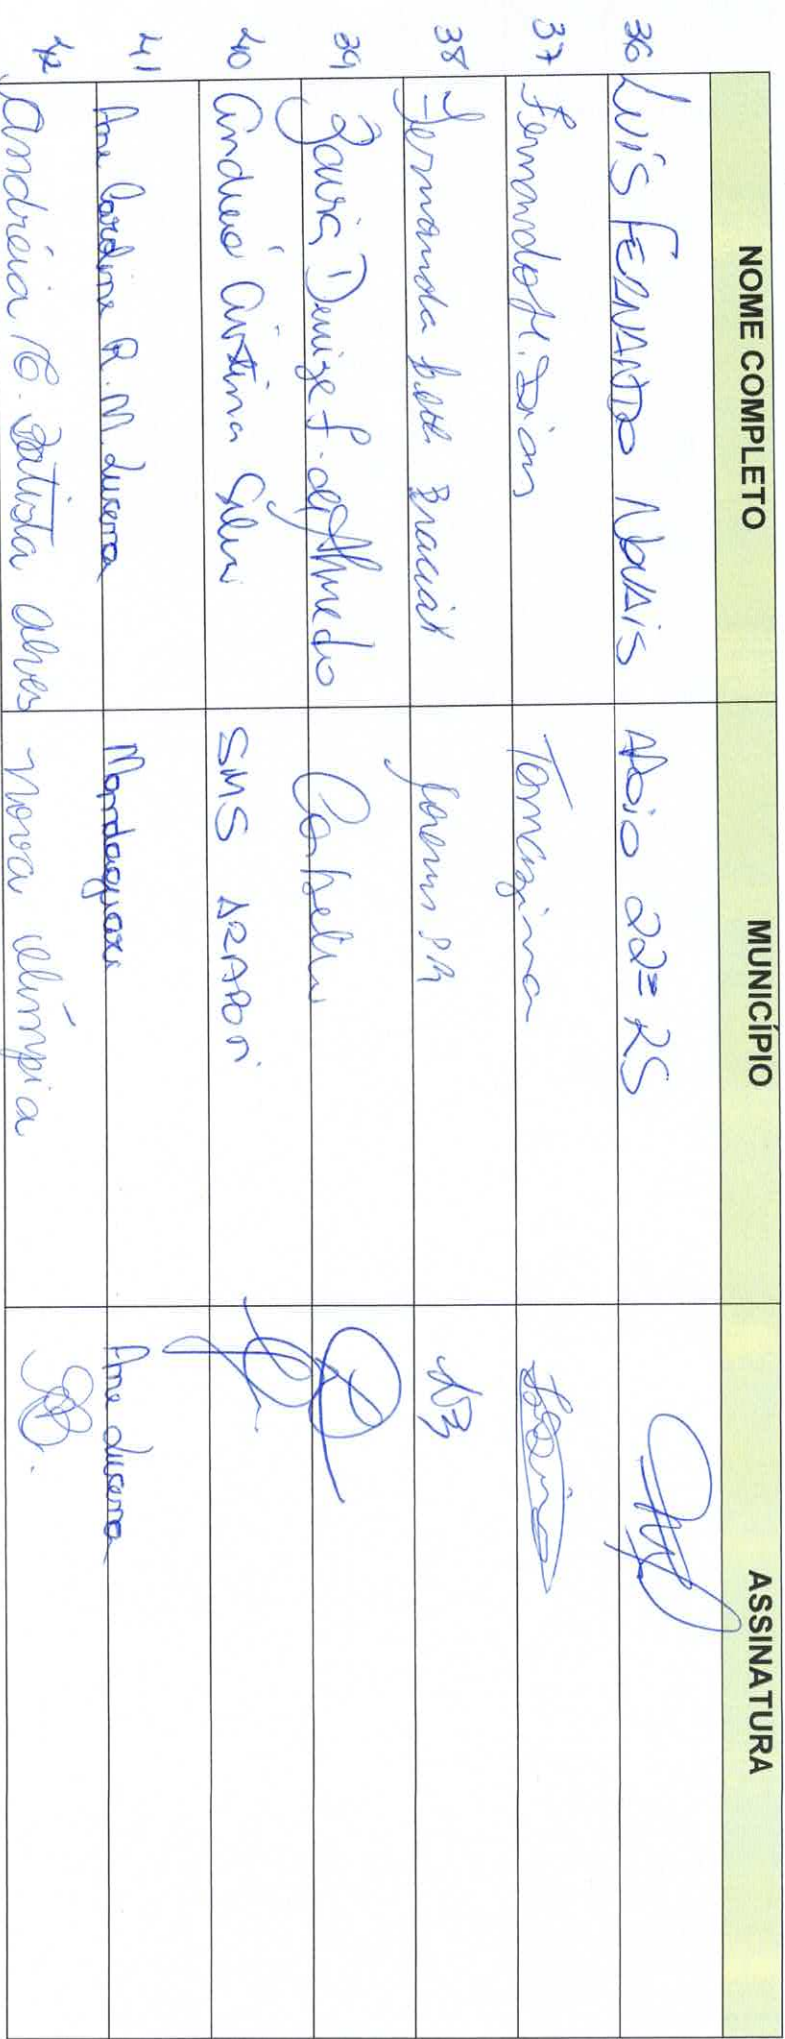 NOME COMPLETO MUNICÍPIO ASSINATURA
36 Luís FERNANDO NOVAIS Apoio 22ª RS
37 Fernando H. Dias Tomazina
38 Fernanda Braciak
39 Zauia Denize F. de Almeida
40 Andreia Cristina Silva SMS ARAPOTI
41 Ane Caroline R. M. Lucena Mandaguari Ane Lucena
42 Andréia Batista Alves Nova Olímpia